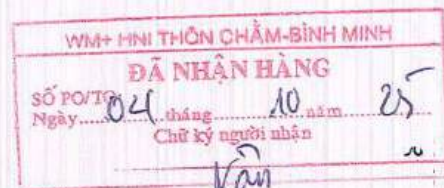 WM+ HNI THÔN CHẦM-BÌNH MINH
ĐÃ NHẬN HÀNG
SỐ PO/TO
Ngày.....04...tháng..........10..năm......25
Chữ ký người nhận
Vân